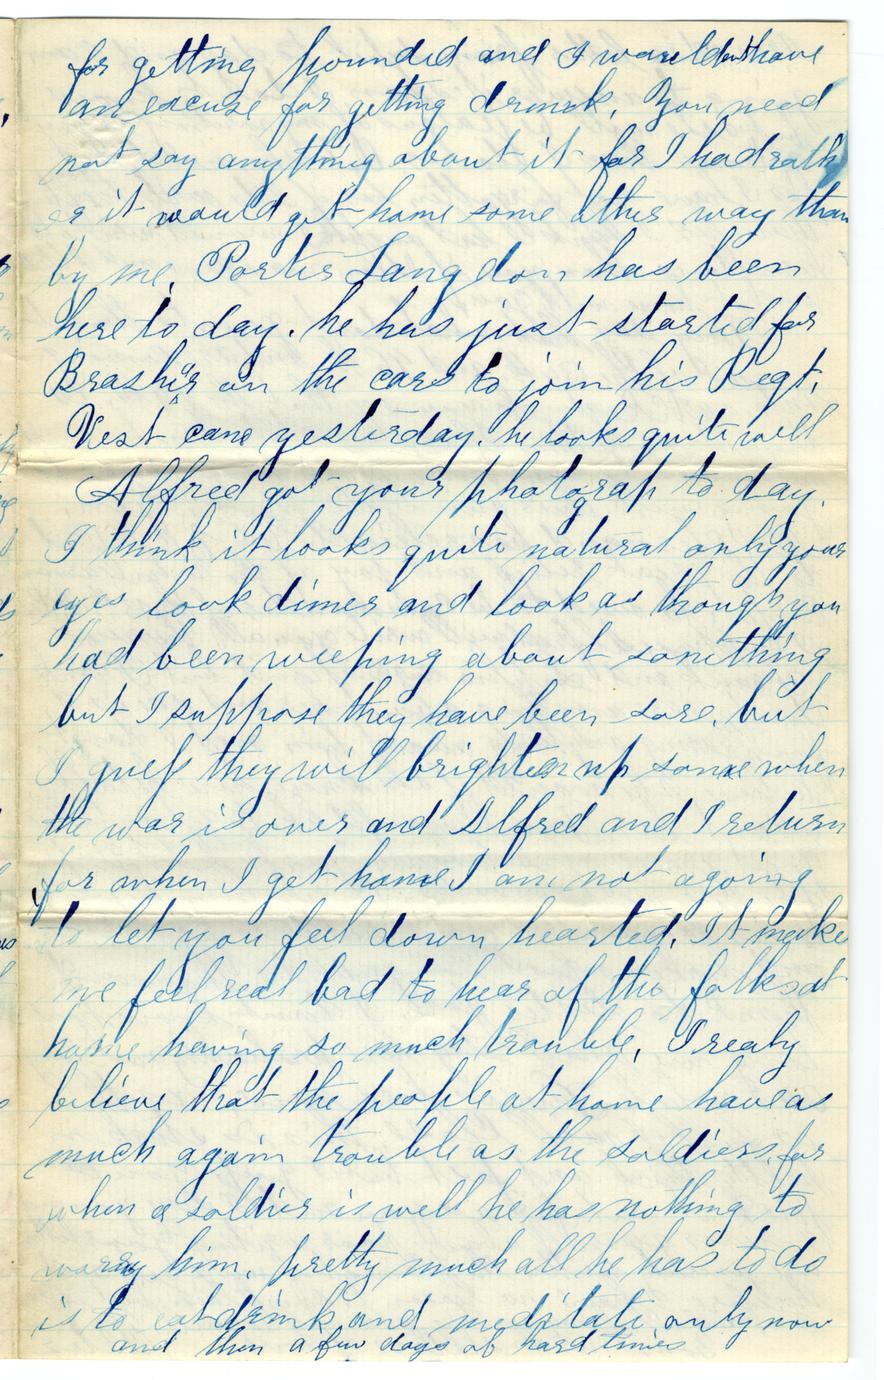 for getting pounded and I wouldnt have
an excuse for getting drunk. You need
not say anything about it for I had rath
er it would get home some other way than
by me. Porter Langdon has been
here to day. he has just started for
Brashier on the cars to join his Regt.
Vest came yesterday. he looks quite well
Alfred got your photograp to day.
I think it looks quite natural only your
eyes look dimer and look as though you
had been weeping about something
but I suppose they have been sore. but
I guess they will brighten up some when
the war is over and Alfred and I return
for when I get home I am not agoing
to let you feel down hearted. It make
me feel real bad to hear of the folks at
home having so much trouble. I realy
believe that the people at home have as
much again trouble as the soldiers. for
when a soldier is well he has nothing to
worry him. pretty much all he has to do
is to eat drink and meditate only now
and then a few days of hard times